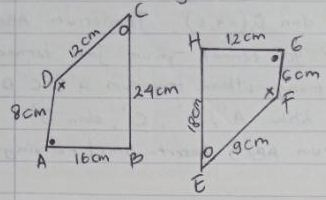 C
12cm
D
x
8cm
24cm
A
16cm
B
H
12cm
G
6cm
x
F
18cm
9cm
E